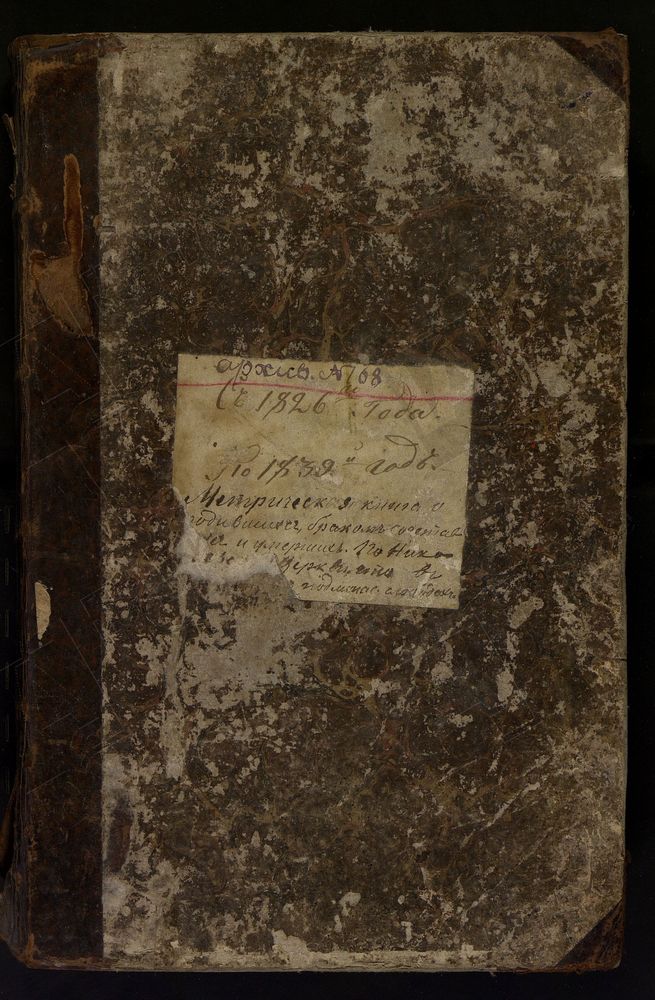 архив. №108
Съ 1826 Года.
По 1839й годъ.
Метрическая книга о
родившихся бракомъ сочетав
и умершихъ. По Нико
церкви, что въ